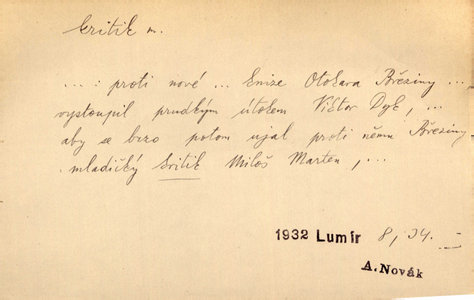 kritik m.
... : proti nové ... knize Otokara Březiny ...
vystoupil prudkým útokem Viktor Dyk, ...
aby se brzo potom ujal proti němu Březiny
mladičký kritik Miloš Marten, ...
1932 Lumír 8, 34.
A. Novák